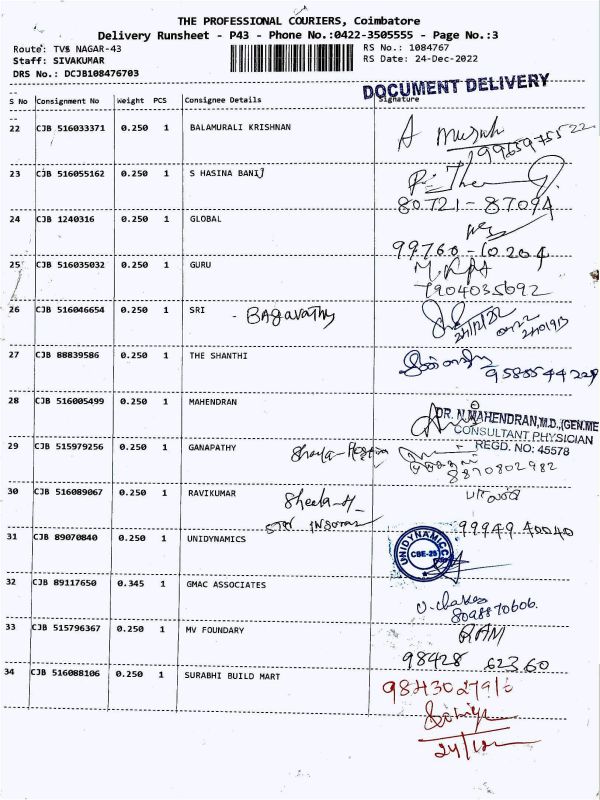 THE PROFESSIONAL COURIERS, Coimbatore
Delivery Runsheet - P43 - Phone No.:0422-3505555 - Page No.:3
Route: TVS NAGAR-43 RS No.: 1084767
Staff: SIVAKUMAR RS Date: 24-Dec-2022
DRS No.: DCJB108476703
DOCUMENT DELIVERY
S No Consignment No Weight PCS Consignee Details Signature
22 CJB 516033371 0.250 1 BALAMURALI KRISHNAN
9965975522
23 CJB 516055162 0.250 1 S HASINA BANU
80721-87094
24 CJB 1240316 0.250 1 GLOBAL
99760-10204
25 CJB 516035032 0.250 1 GURU
7904035692
26 CJB 516046654 0.250 1 SRI - Bagavathy
27 CJB 88839586 0.250 1 THE SHANTHI
9585544229
28 CJB 516005499 0.250 1 MAHENDRAN
DR. N.MAHENDRAN,M.D.,(GEN.ME
CONSULTANT PHYSICIAN
REGD. NO: 45578
29 CJB 515979256 0.250 1 GANAPATHY
8870802982
30 CJB 516089067 0.250 1 RAVIKUMAR Sheela-H
31 CJB 89070840 0.250 1 UNIDYNAMICS 99949 40040
UNIDYNAMICC
CBE-25
32 CJB 89117650 0.345 1 GMAC ASSOCIATES
8098870606.
33 CJB 515796367 0.250 1 MV FOUNDARY RAM
98428 62360
34 CJB 516088106 0.250 1 SURABHI BUILD MART
24/12